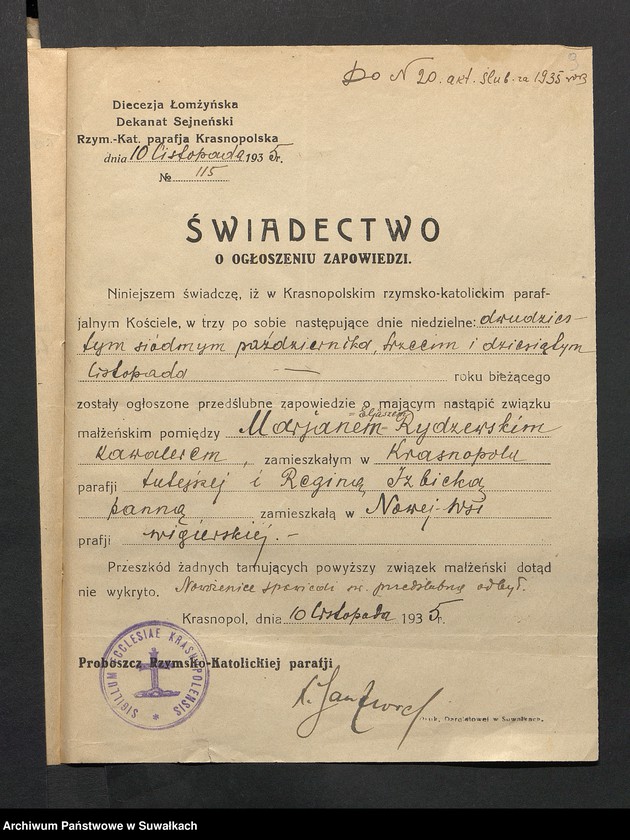 Do N 20. akt. ślub. za 1935 rok
9
Diecezja Łomżyńska
Dekanat Sejneński
Rzym.-Kat. parafja Krasnopolska
dnia 10 Listopada 1935r.
№ 115
ŚWIADECTWO
O OGŁOSZENIU ZAPOWIEDZI.
Niniejszem świadczę, iż w Krasnopolskim rzymsko-katolickim paraf-
jalnym Kościele, w trzy po sobie następujące dnie niedzielne: dwudzies-
tym siódmym października, trzecim i dziesiątym
listopada — roku bieżącego
zostały ogłoszone przedślubne zapowiedzie o mającym nastąpić związku
małżeńskim pomiędzy Marjanem- Rydzewskim
kawalerem, zamieszkałym w Krasnopolu
parafji tutejszej i Reginą Izbicką
panną zamieszkałą w Nowej-Wsi
prafji wigierskiej. –
Przeszkód żadnych tamujących powyższy związek małżeński dotąd
nie wykryto. Nowożeniec spowiedź św. przedślubną odbył.
Krasnopol, dnia 10 Listopada 1935r.
Proboszcz Rzymsko-Katolickiej parafji
SIGILLUM ECCLESIAE KRASNOPOLENSIS
w Suwałkach.
Archiwum Państwowe w Suwałkach